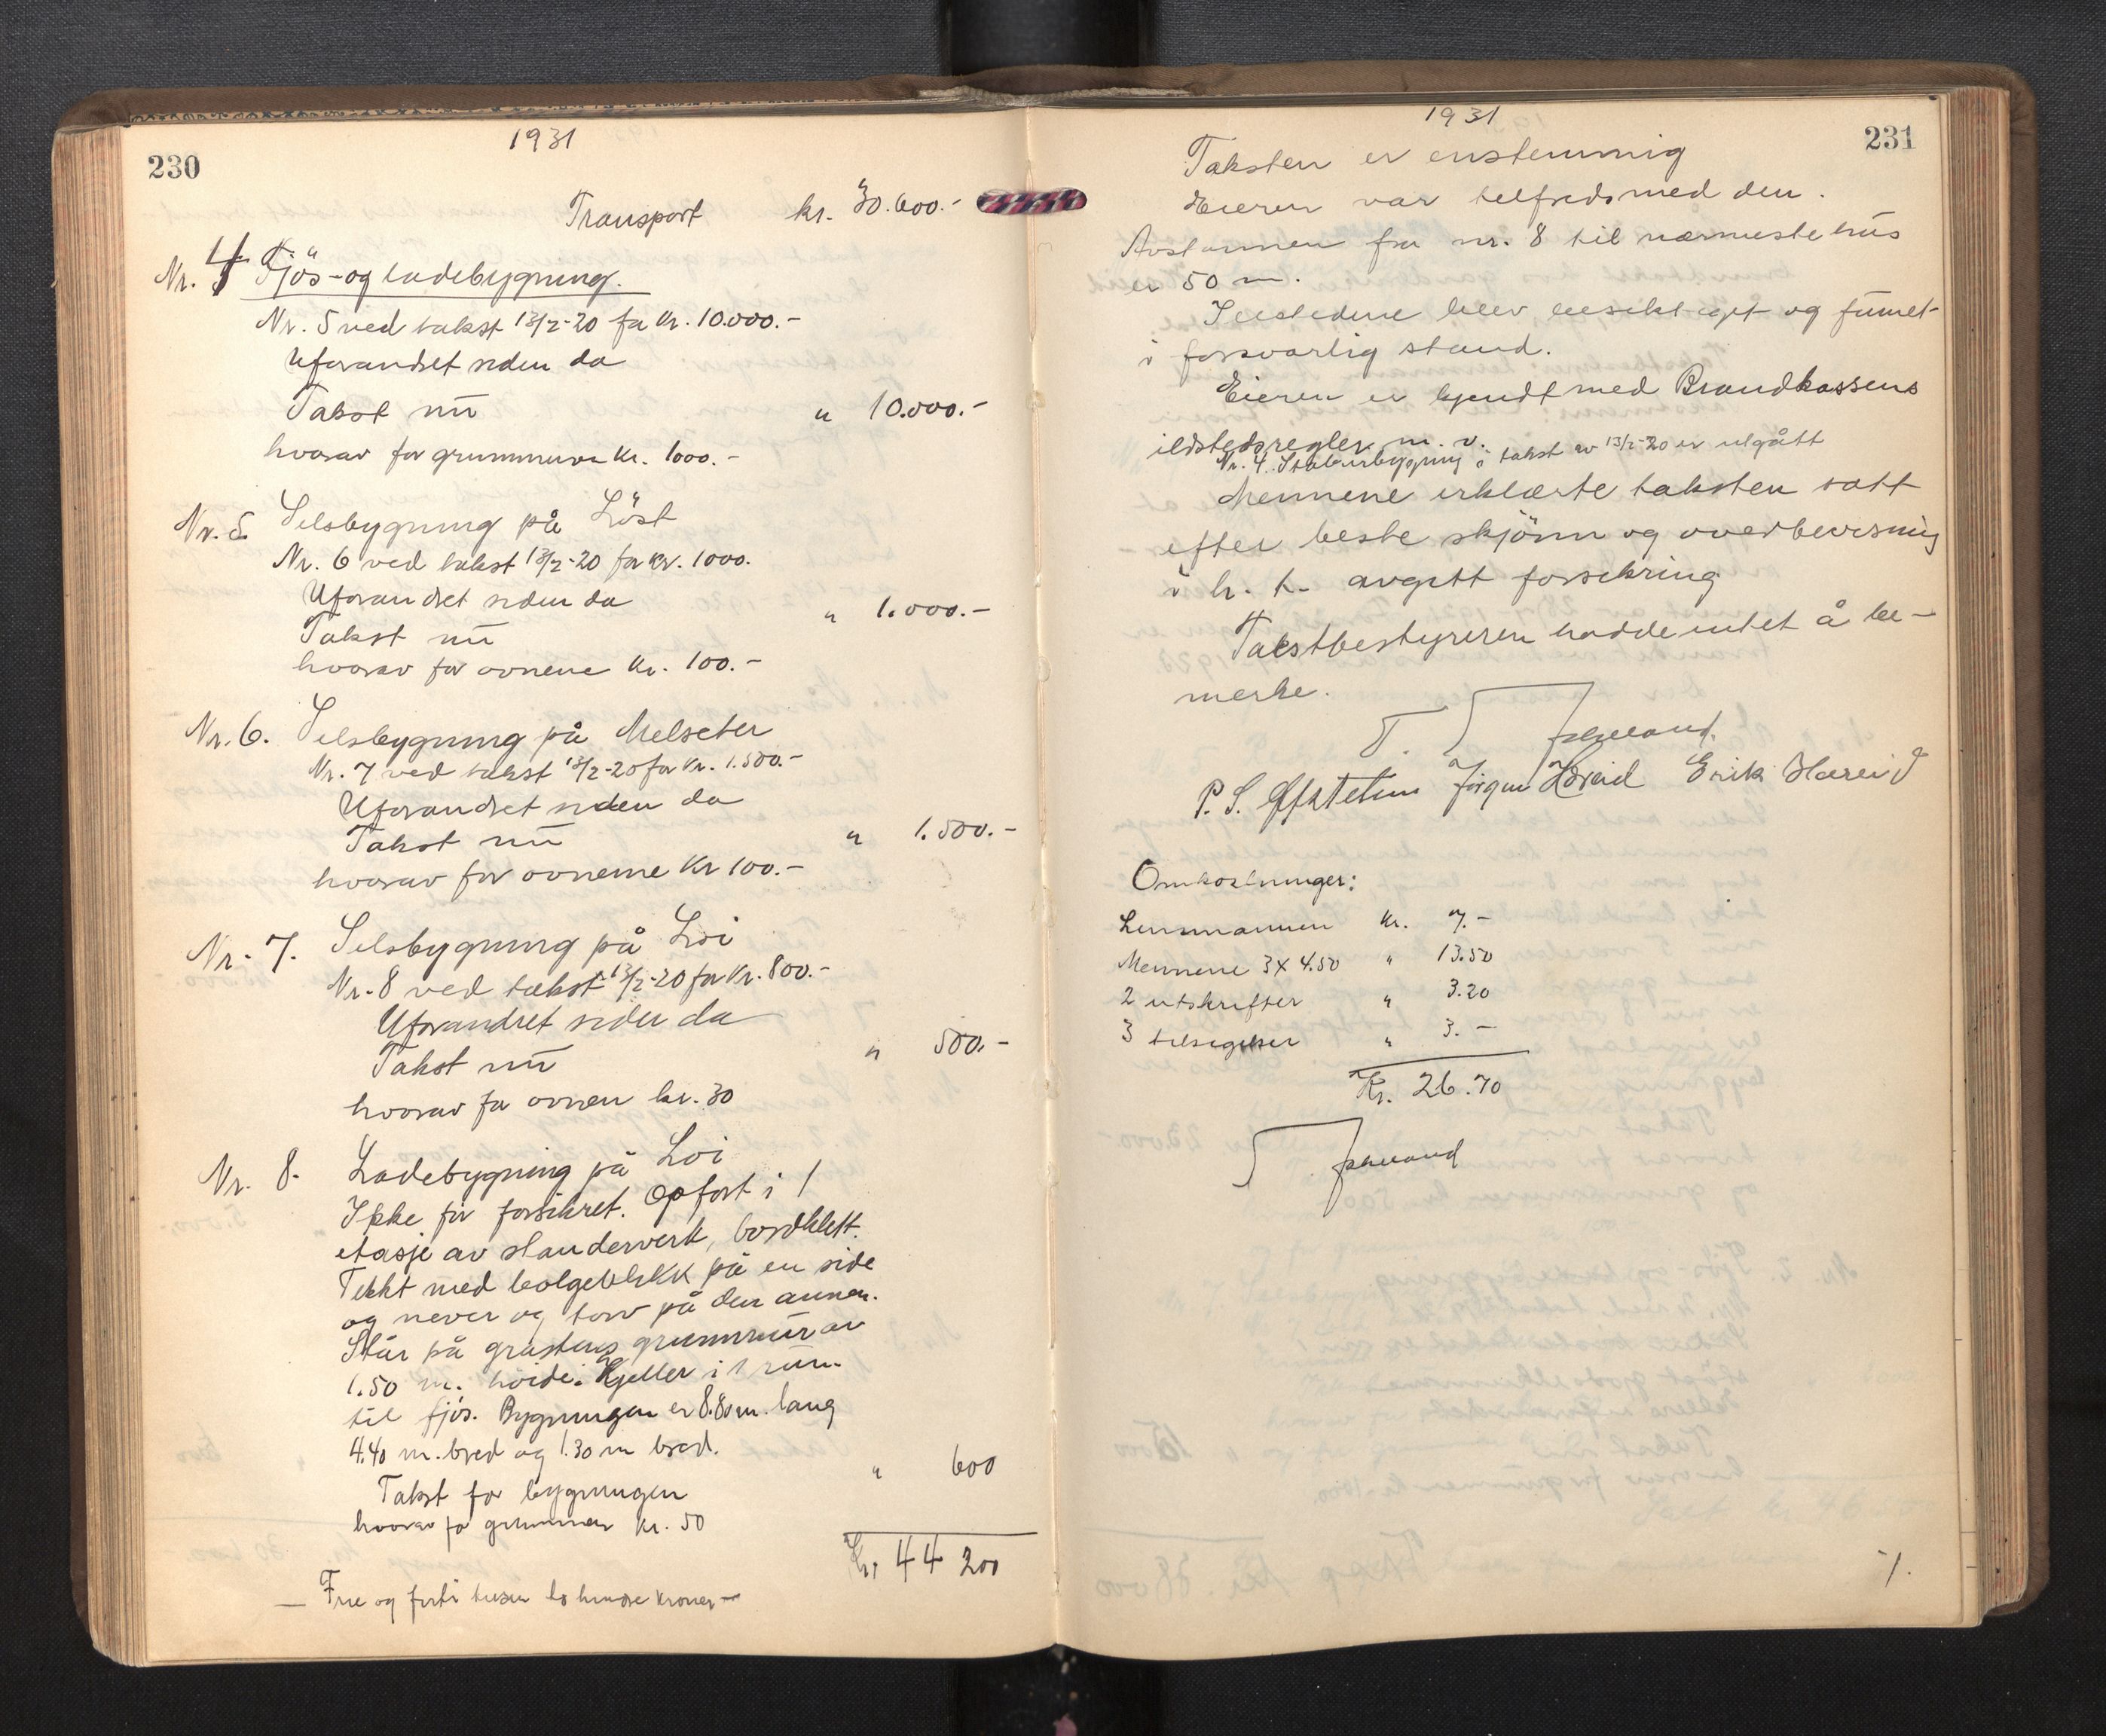 1931
230
Transport kr. 30.600.-
Nr. 4 Fjös- og ladebygning.
Nr. 5 ved takst 13/2-20 for kr. 10.000.-
Uforandret siden da
Takst nu " 10.000.-
hvorav for grunnmuren kr. 1000.-
Nr. 5. Selsbygning på Löst
Nr. 6 ved takst 13/2-20 for kr. 1000.
Uforandret siden da
Takst nu " 1.000.-
hvorav for ovnene kr. 100.-
Nr. 6. Selsbygning på Melseter
Nr. 7 ved takst 13/2-20 for kr. 1.500.-
Uforandret siden da
Takst nu " 1.500.-
hvorav for ovnene kr 100.-
Nr. 7. Selsbygning på Loi
Nr. 8 ved takst 13/2-20 for kr. 800.-
Uforandret siden da
Takst nu " 500.-
hvorav for ovnen kr. 30
Nr. 8. Ladebygning på Loi
Ikke för forsikret. Opfort i 1
etasje av standerverk, bordklett.
Tekt med bolgeblikk på en side
og never og torv på den annen.
Står på gråstens grunnmur av
1.50 m. höide. Kjeller i 1 rum
til fjös. Bygningen er 8.80 m. lang
4.40 m. bred og 1.30 m bred.
Takst for bygningen " 600
hvorav for grunnmur kr. 50
Kr 44 200
— Fire og forti tusen to hundre kroner —
1931
231
Taksten er enstemmig
Eieren var tilfreds med den.
Avstannen fra nr. 8 til nærmeste hus
er 50 m.
Ildstedene blev besiktiget og funnet
i forsvarlig stand.
Eieren er kjendt med Brandkassens
ildstedsregler m. v.
Nr. 4. Stabursbygning i takst av 13/2-20 er utgått
Mennene erklærte taksten satt
efter beste skjönn og overbevisning
i h. t. avgitt forsikring
Takstbestyreren hadde intet å be-
merke.
T.
P. S. Jörgen Hereid Erik Hereid
Omkostninger:
Lensmannen kr. 7.-
Mennene 3 x 4.50 " 13.50
2 utskrifter " 3.20
3 tilsigelser " 3.-
Kr. 26.70
/.